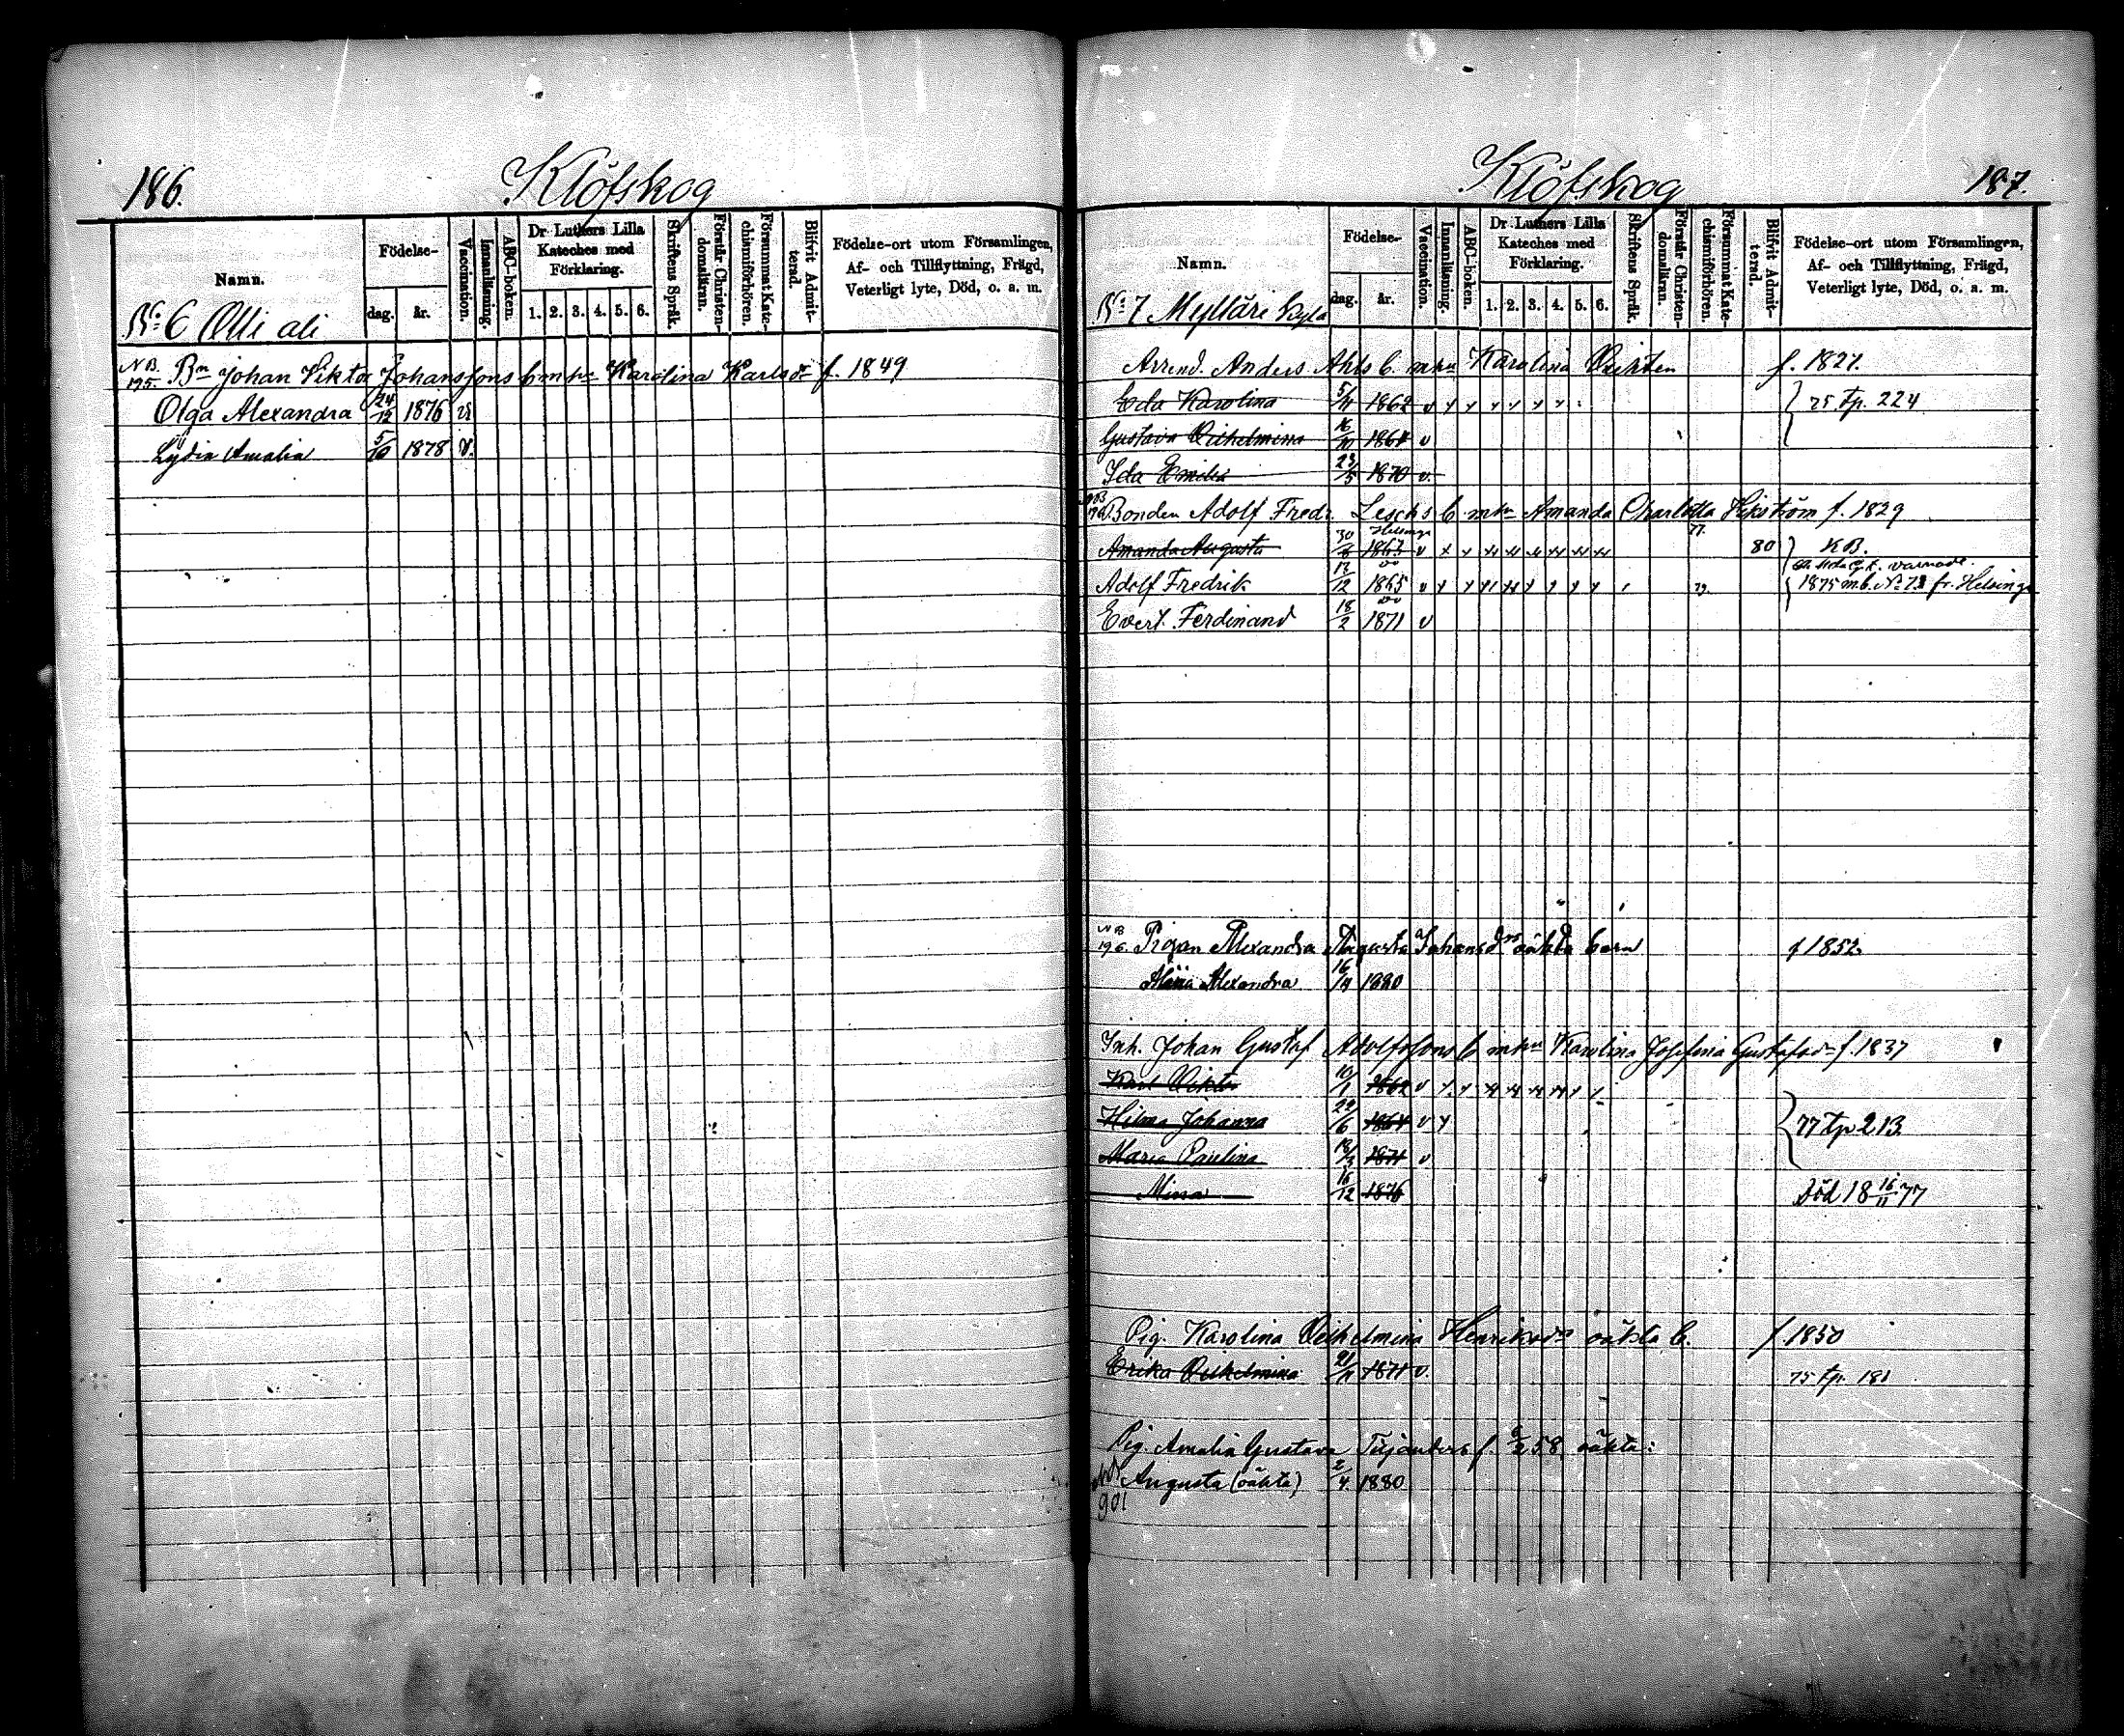 186.
Klöfskog
Namn.
Födelse-
dag.
år.
Vaccination.
Innanläsning.
ABC-boken.
Dr Luthers Lilla Kateches med Förklaring.
1. 2. 3. 4. 5. 6.
Skriftens Språk.
Förstår Christendomsläran.
Försummat Katechismiförhören.
Blifvit Admitterad.
Födelse-ort utom Församlingen,
Af- och Tillflyttning, Frägd,
Veterligt lyte, Död, o. a. m.
No 6 Olli ali
NB. 195. Bn Johan Viktor Johanssons b m hu Karolina Karlsdr f. 1849
Olga Alexandra 24/12 1876 v
Lydia Amalia 5/10 1878 v.
Klöfskog
187.
Namn.
Födelse-
dag.
år.
Vaccination.
Innanläsning.
ABC-boken.
Dr Luthers Lilla Kateches med Förklaring.
1. 2. 3. 4. 5. 6.
Skriftens Språk.
Förstår Christendomsläran.
Försummat Katechismiförhören.
Blifvit Admitterad.
Födelse-ort utom Församlingen,
Af- och Tillflyttning, Frägd,
Veterligt lyte, Död, o. a. m.
No 7 Mylläre
Arrend. Anders Ahls b. m hu Karolina f. 1821.
Eda Karolina 1862 v 75 tp. 224
Gustava Vilhelmina 1864 v
Ida Emilia 23/5 1870 v.
NB Bonden Adolf Fredr. Leschs b m hu Amanda Charlotta Vikström f. 1829
Amanda Augusta 30/6 1863 v 77. 80 KB.
Adolf Fredrik 13/12 1865 v 79. 1875 m.b. No 73 fr. Helsinge
Evert Ferdinand 18/2 1871 v
NB 196. Pigan Alexandra Augusta Johansdrs oäkta barn f 1852.
Alina Alexandra 16/4 1880
Inh. Johan Gustaf Adolfssons b m hu Karolina Josefina Gustafsdr f. 1837
Karl Viktor 10/1 1862 v
Hilma Johanna 22/6 1864 v 77 tp 213
Maria Paulina 1871 v
Mina 16/12 1876 Död 18 16/11 77
Pig. Karolina Vilhelmina Henriksdrs oäkta b. f 1850
Erika Vilhelmina 1871 v. 75 tp. 181
Pig. Amalia Gustava Tujanders f. 58 oäkta:
Augusta (oäkta) 2/4 1880
901